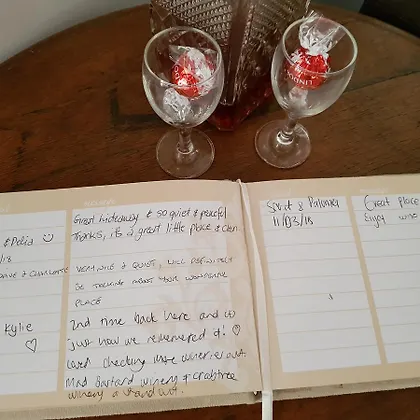 LINDOR
& Delia ☺
/18
DAVE & CHARLOTTE
Kylie
♡
Great hideaway & so quiet & peaceful
Thanks, it's a great little place & clean.
VERY NICE & QUIET, WILL DEFINITELY
BE TALKING ABOUT YOUR WONDERFUL
PLACE
2nd time back here and its
just how we remembered it! ♡
Loved checking more wineries out.
Mad Bastard winery & Crabtree
winery a stand out.
& Paloma
11/03/18
Great Place
Enjoy wine